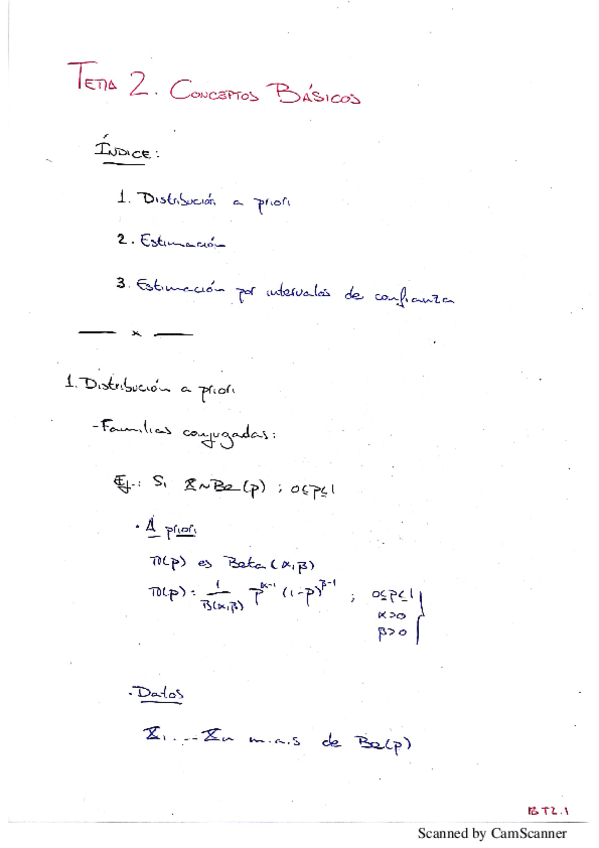 TEMA 2. CONCEPTOS BÁSICOS
ÍNDICE:
1. Distribución a priori
2. Estimación
3. Estimación por intervalos de confianza
— x —
1. Distribución a priori
- Familias conjugadas:
Ej.: Si X ~ Be(p) ; 0≤p≤1
· A priori
π(p) es Beta(α,β)
π(p) = 1/B(α,β) p^(α-1) (1-p)^(β-1) ; 0≤p≤1
α>0
β>0
· Datos
X1 ... Xn m.a.s de Be(p)
BT2.1
Scanned by CamScanner